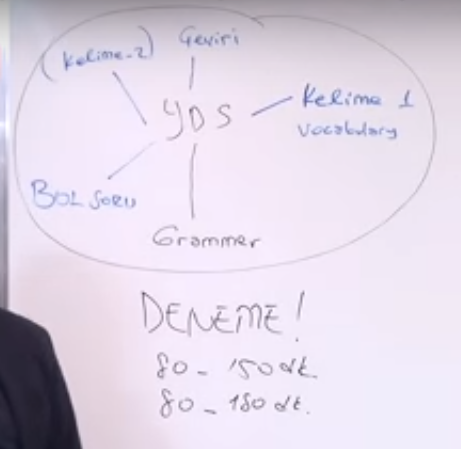 (Kelime-2)
Çeviri
YDS
Kelime 1
Vocabulary
BOL SORU
Grammer
DENEME!
80 - 150 dk.
80 - 180 dk.